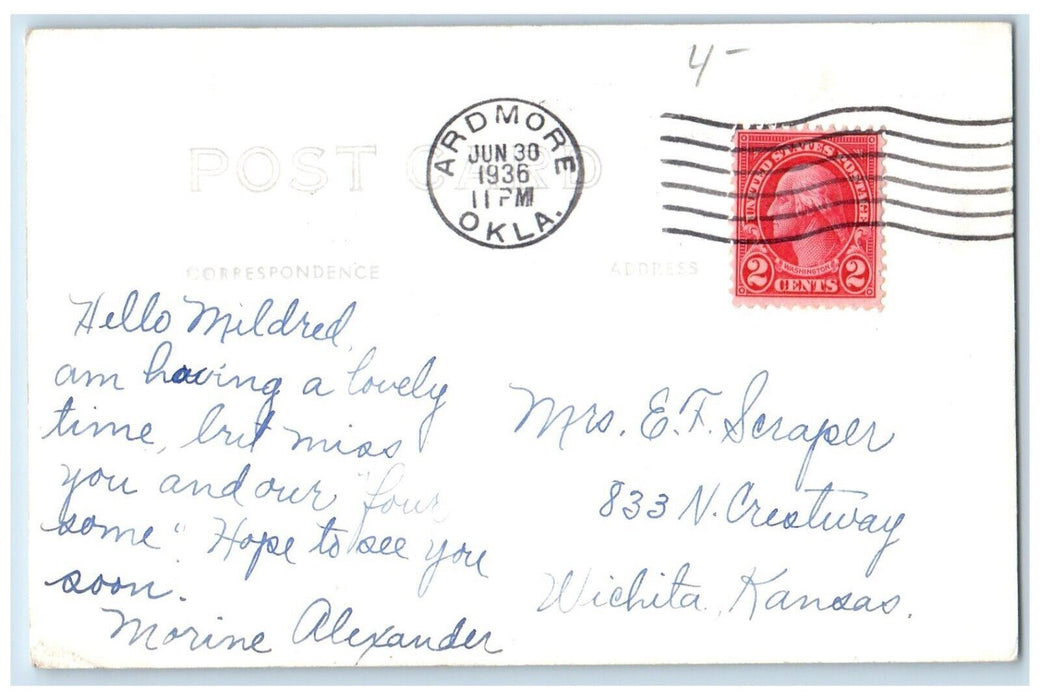 4-
ARDMORE
JUN 30
1936
11 PM
OKLA.
UNITED STATES POSTAGE
WASHINGTON
2 CENTS 2
POST CARD
CORRESPONDENCE
ADDRESS
Hello Mildred,
am having a lovely
time, but miss
you and our "four
some". Hope to see you
soon.
Morine Alexander
Mrs. E.F. Scraper
833 N. Crestway
Wichita, Kansas.